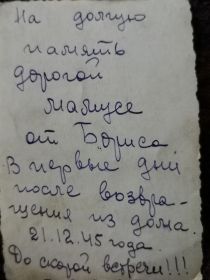 На долгую
память
дорогой
мамусе
от Бориса
В первые дни
после возвра-
щения из дома.
21.12.45 года.
До скорой встречи!!!